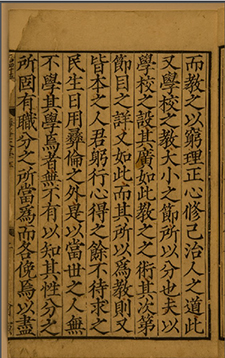 而教之以窮理正心修己治人之道此
又學校之教大小之節所以分也夫以
學校之設其廣如此教之之術其次第
節目之詳又如此而其所以為教則又
皆本之人君躬行心得之餘不待求之
民生日用彝倫之外是以當世之人無
不學其學焉者無不有以知其性分之
所固有職分之所當為而各俛焉以盡